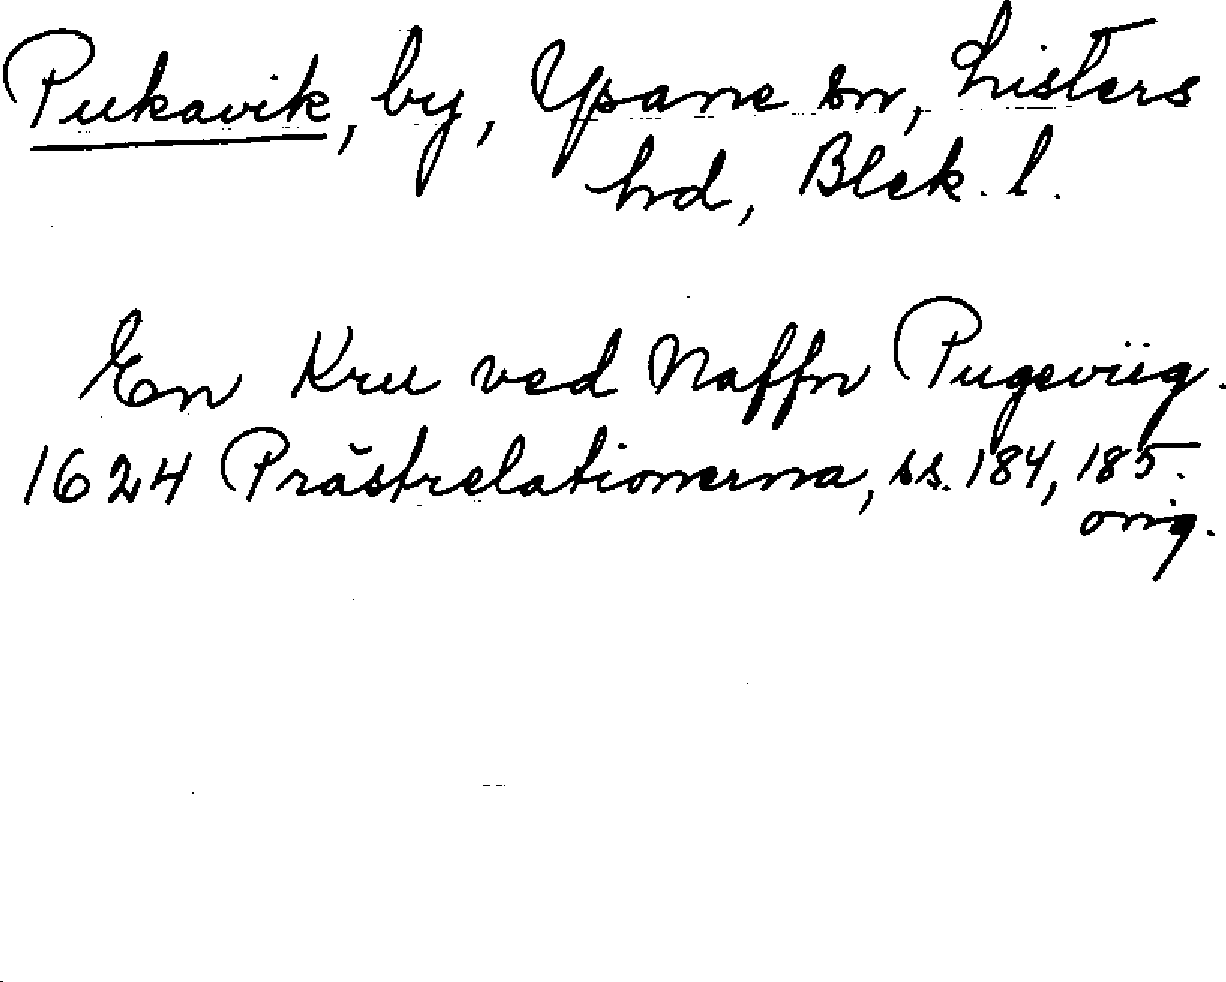 Pukavik, by, Ysane sn, Listers
hrd, Blek. l.
En Kru ved Naffn Pugeviig.
1624 Prästrelationerna, ss. 184, 185.
orig.